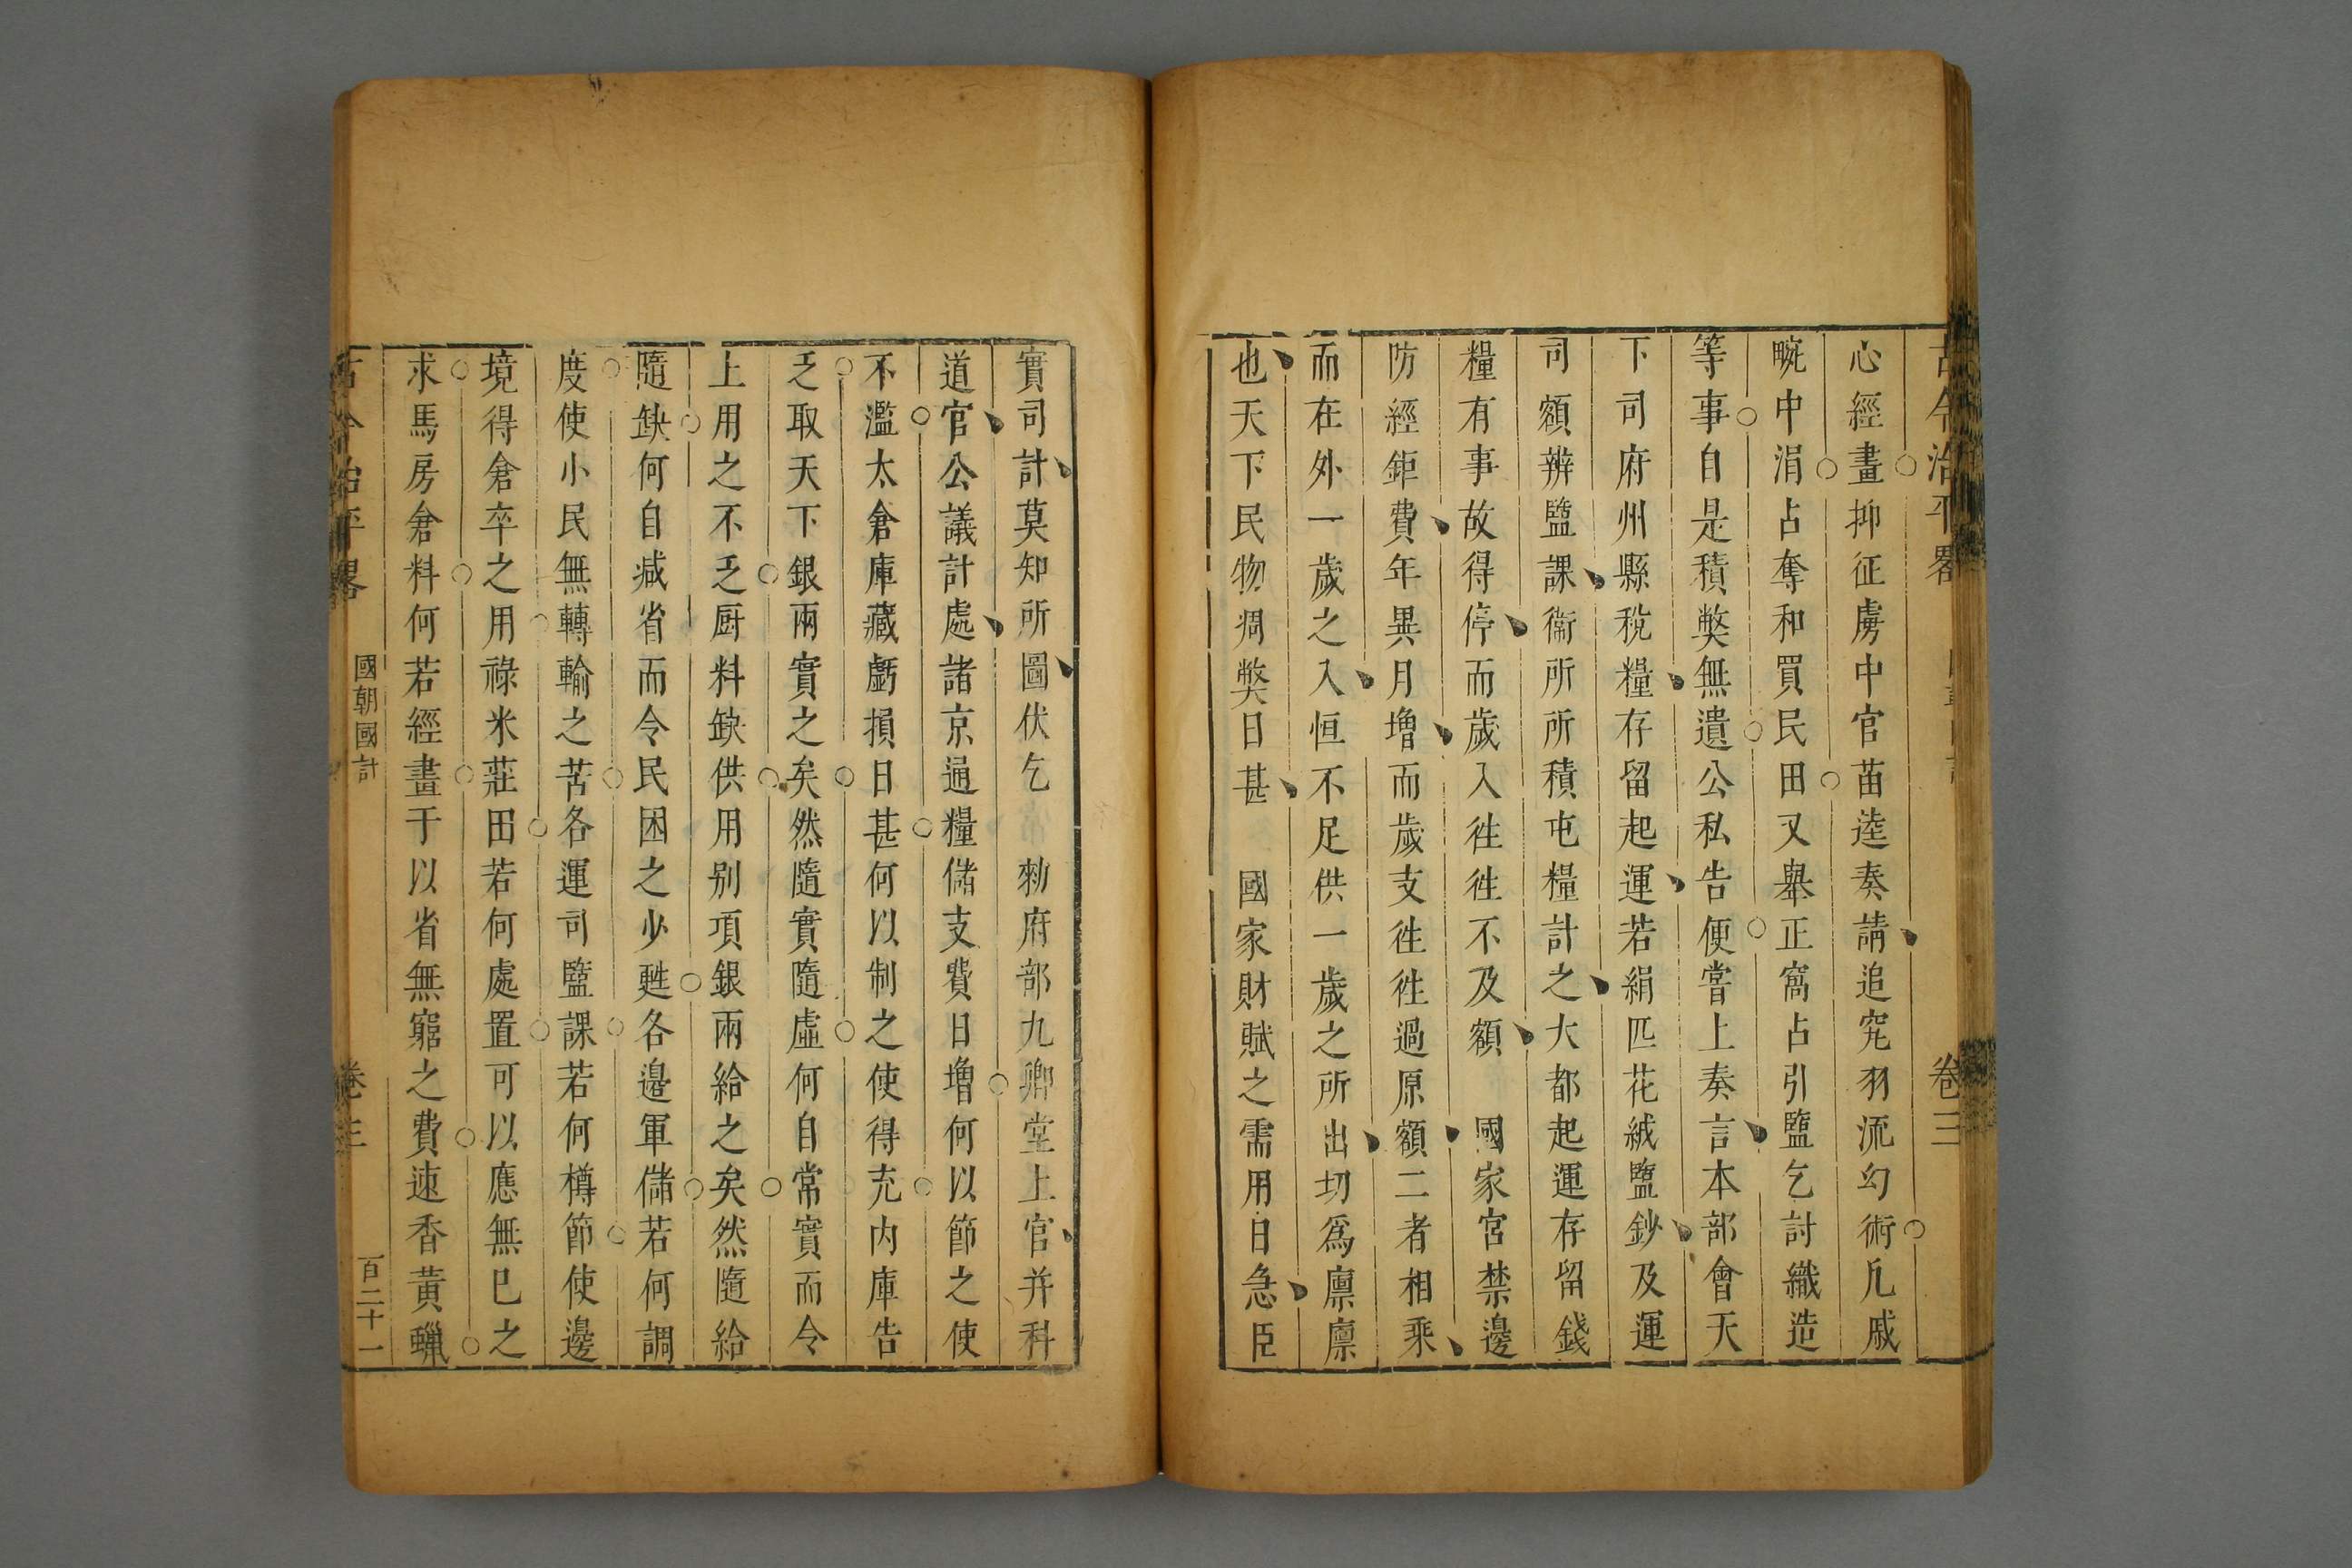 心經畫抑征虜中官苗逵奏請追究羽流幻術凡戚
畹中涓占奪和買民田又舉正窩占引鹽乞討織造
等事自是積獘無遺公私告便嘗上奏言本部會天
下司府州縣稅糧存留起運若絹匹花絨鹽鈔及運
司額辨鹽課衞所所積屯糧計之大都起運存留錢
糧有事故得停而歲入徃徃不及額 國家宮禁邊
防經鉅費年異月增而歲支徃徃過原額二者相乘
而在外一歲之入恒不足供一歲之所出切爲廪廪
也天下民物凋獘日甚 國家財賦之需用日急臣
古今治平畧 卷三
實司計莫知所圖伏乞 勑府部九卿堂上官并科
道官公議計處諸京通糧儲支費日增何以節之使
不濫太倉庫藏虧損日甚何以制之使得充內庫告
乏取天下銀兩實之矣然隨實隨虛何自常實而令
上用之不乏厨料缺供用别項銀兩給之矣然隨給
隨缺何自减省而令民困之少甦各邊軍儲若何調
度使小民無轉輸之苦各運司鹽課若何樽節使邊
境得倉卒之用祿米莊田若何處置可以應無已之
求馬房倉料何若經畫于以省無窮之費速香黃蠟
古今治平畧 國朝國計 卷三 百二十一